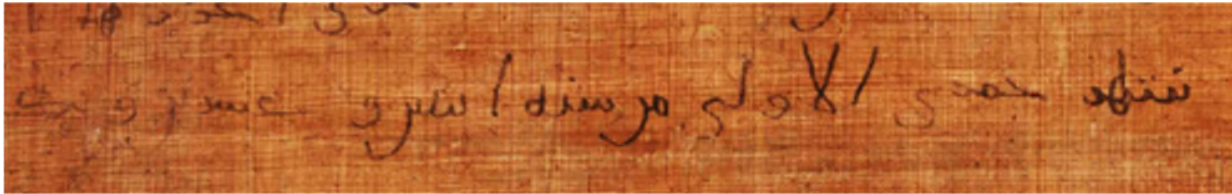 شهر جمدى الاولى من سنه اثنين و عشرين و كتب